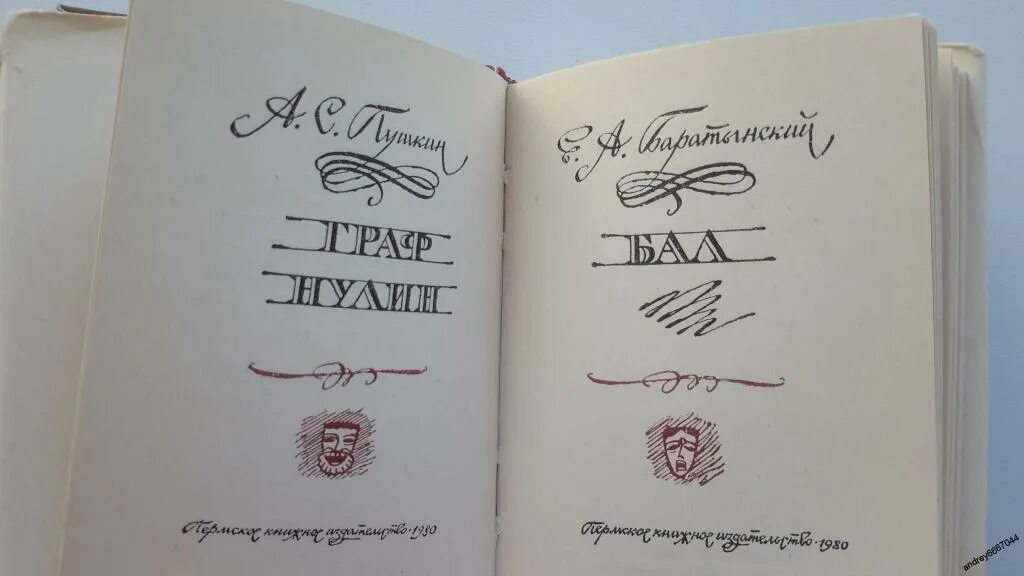 А. С. Пушкин
ГРАФ
НУЛИН
Пермское книжное издательство · 1980
Е. А. Баратынский
БАЛ
Пермское книжное издательство · 1980
andrey6667044